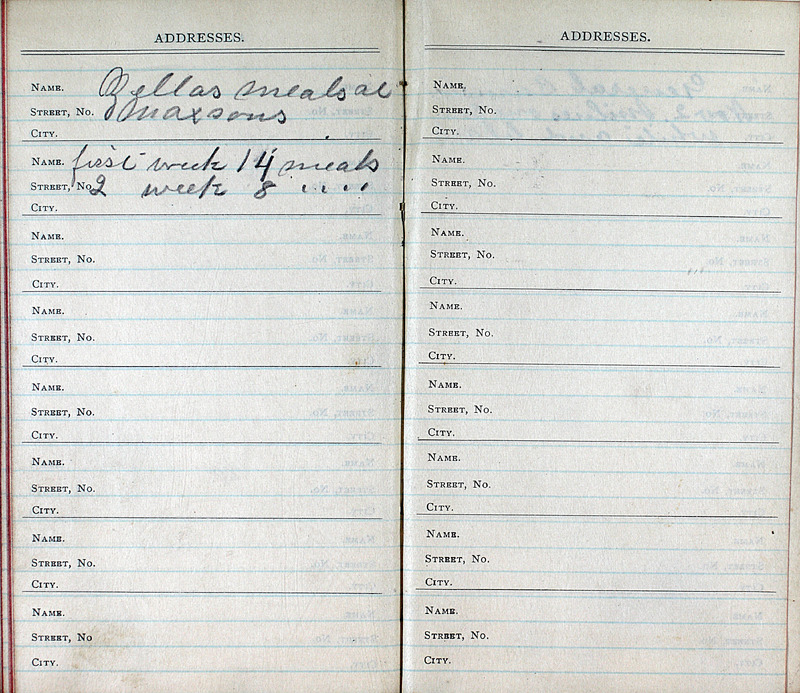 ADDRESSES.
NAME. Zellas meals at
STREET, NO. Maxsons
CITY.
NAME. first week 14 meals
STREET, NO. 2 week 8 " "
CITY.
NAME.
STREET, NO.
CITY.
NAME.
STREET, NO.
CITY.
NAME.
STREET, NO.
CITY.
NAME.
STREET, NO.
CITY.
NAME.
STREET, NO.
CITY.
NAME.
STREET, NO
CITY.
ADDRESSES.
NAME.
STREET, NO.
CITY.
NAME.
STREET, NO.
CITY.
NAME.
STREET, NO.
CITY.
NAME.
STREET, NO.
CITY.
NAME.
STREET, NO.
CITY.
NAME.
STREET, NO.
CITY.
NAME.
STREET, NO.
CITY.
NAME.
STREET, NO.
CITY.